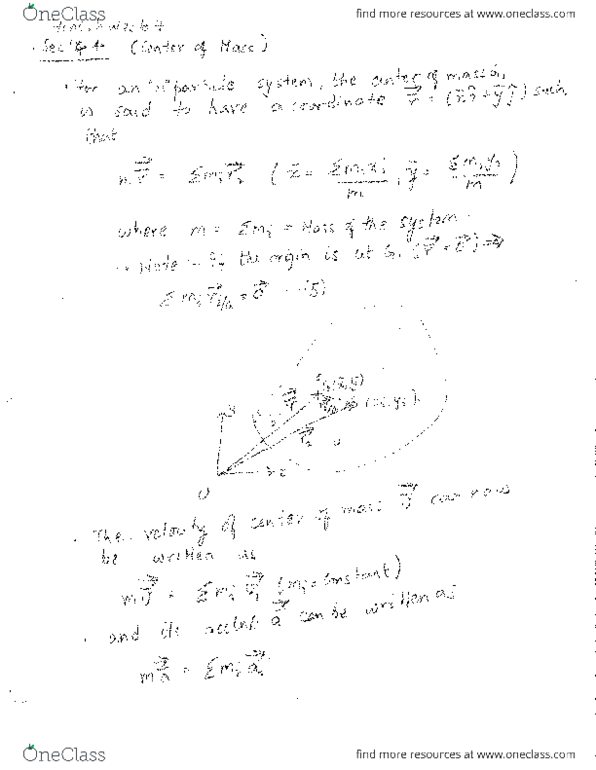 OneClass
find more resources at oneclass.com
(Center of Mass)
For an "n" particle system, the center of mass G,
is said to have a coordinate r̄ = (x̄î + ȳĵ) such
that
m r̄ = Σmᵢ r⃗ᵢ ( x̄ = Σmᵢxᵢ/m , ȳ = Σmᵢyᵢ/m )
where m = Σmᵢ = Mass of the system.
Note - If the origin is at G, (r̄ = 0⃗) ⇒
Σmᵢ r⃗ᵢ/G = 0⃗ --- (5)
y
G (x̄, ȳ)
(xᵢ, yᵢ)
r⃗ᵢ
O
x
The velocity of center of mass v̄ can now
be written as
m v̄ = Σmᵢ v⃗ᵢ (mᵢ = Constant)
and its acclnt ā can be written as
m ā = Σmᵢ a⃗ᵢ
OneClass
find more resources at oneclass.com